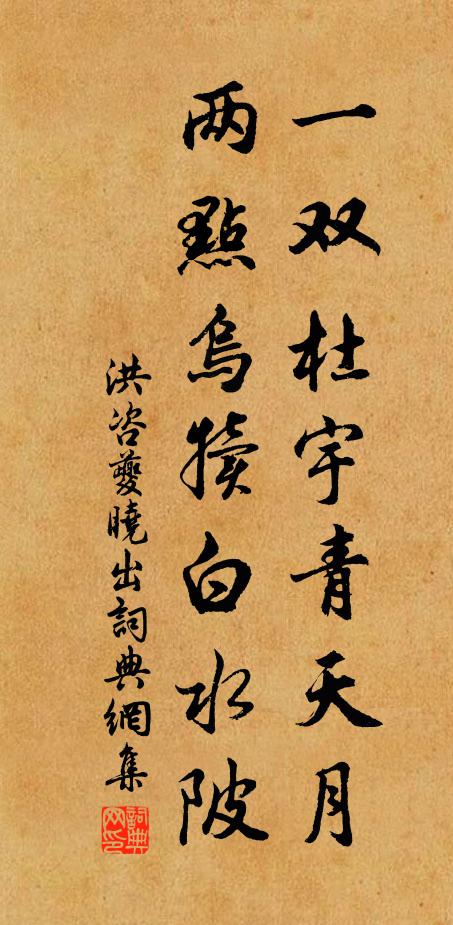 一双杜宇青天月
两點烏犢白水陂
洪咨夔曉出詞典網集
詞典网印